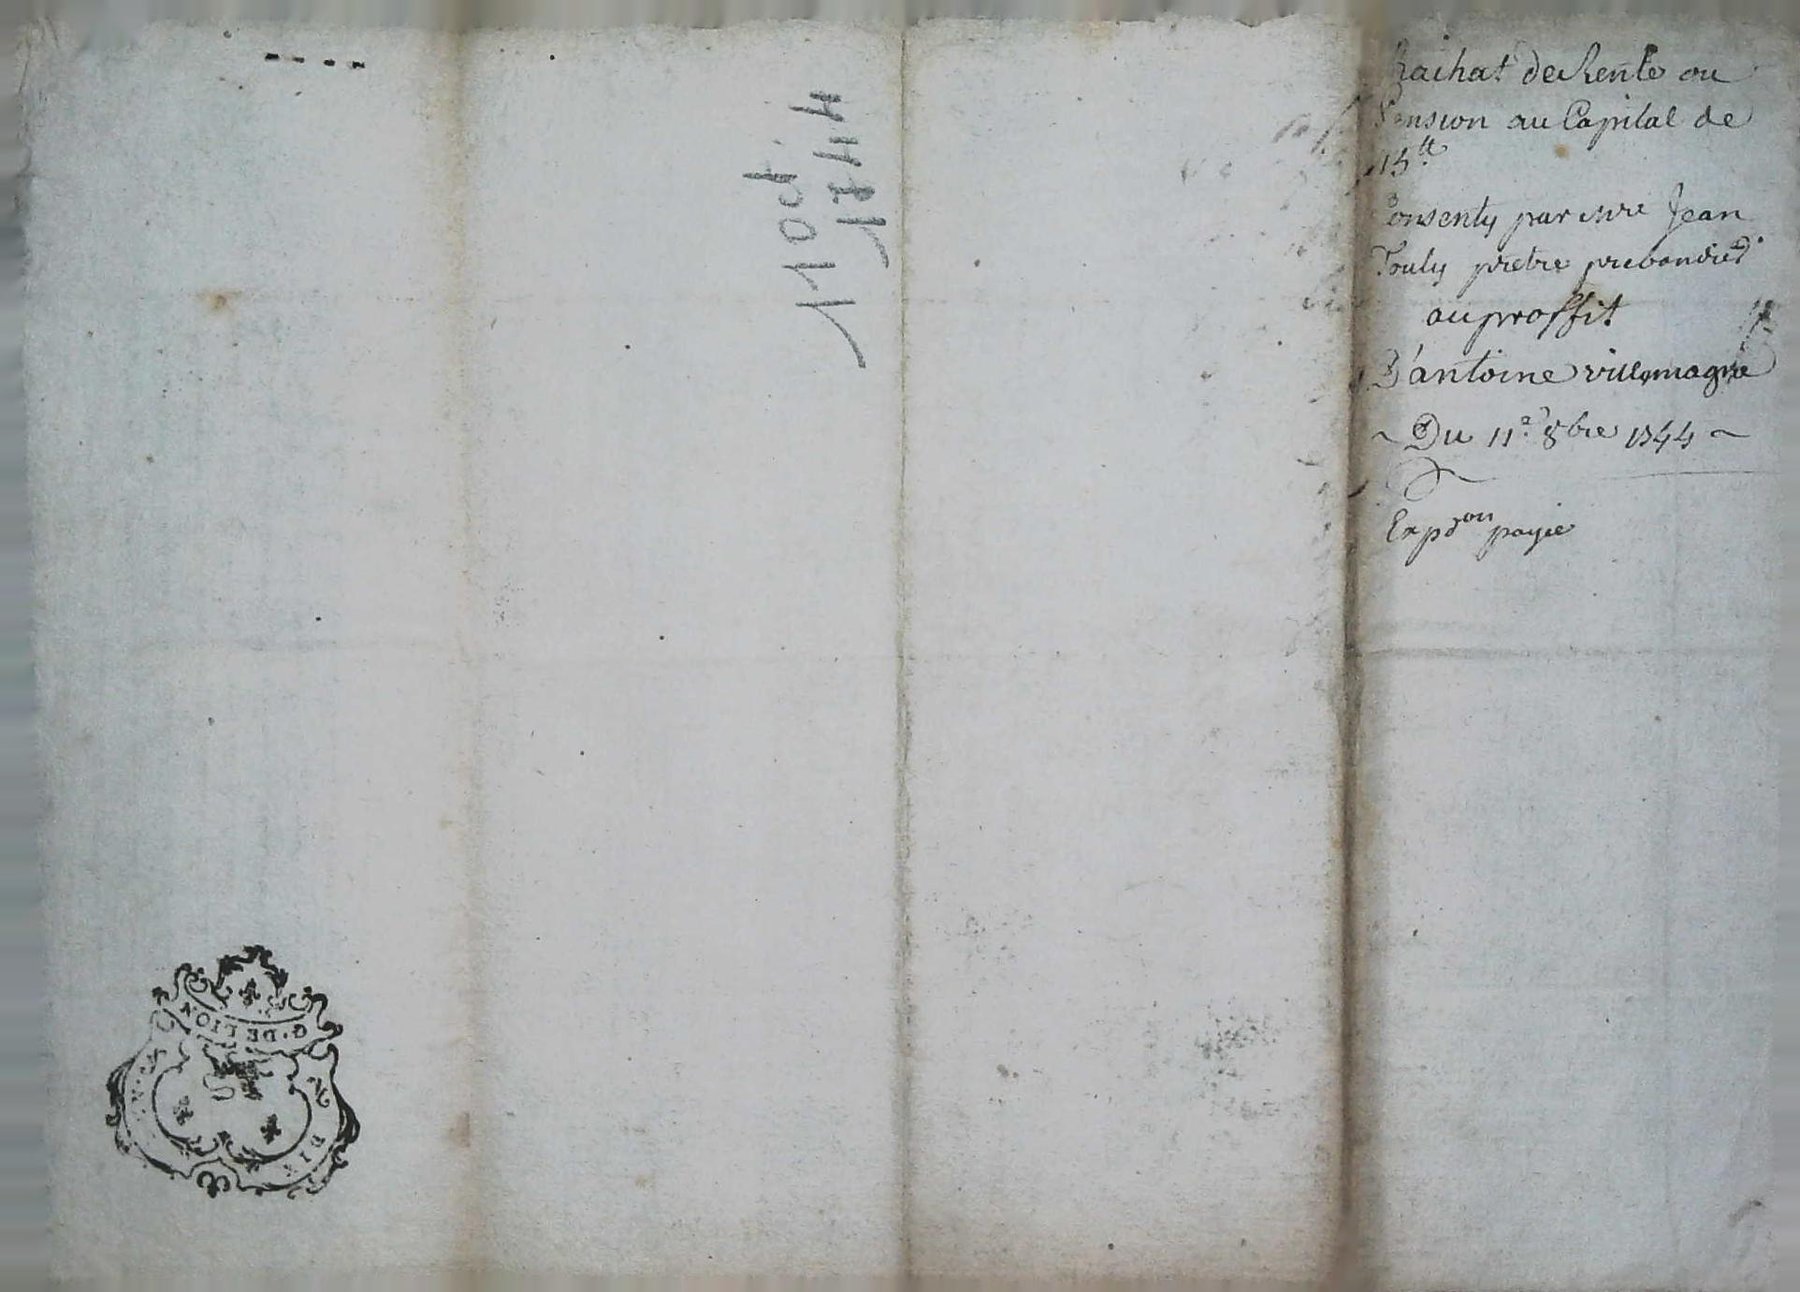 Rachat de Rente ou
Pension au Capital de
15 ₶
Consenty par mre Jean
Touly pretre prebandier
au proffit
D'antoine villemagne
~ Du 11e 8bre 1744 ~
Expdon payée
G. DE LION
DIX